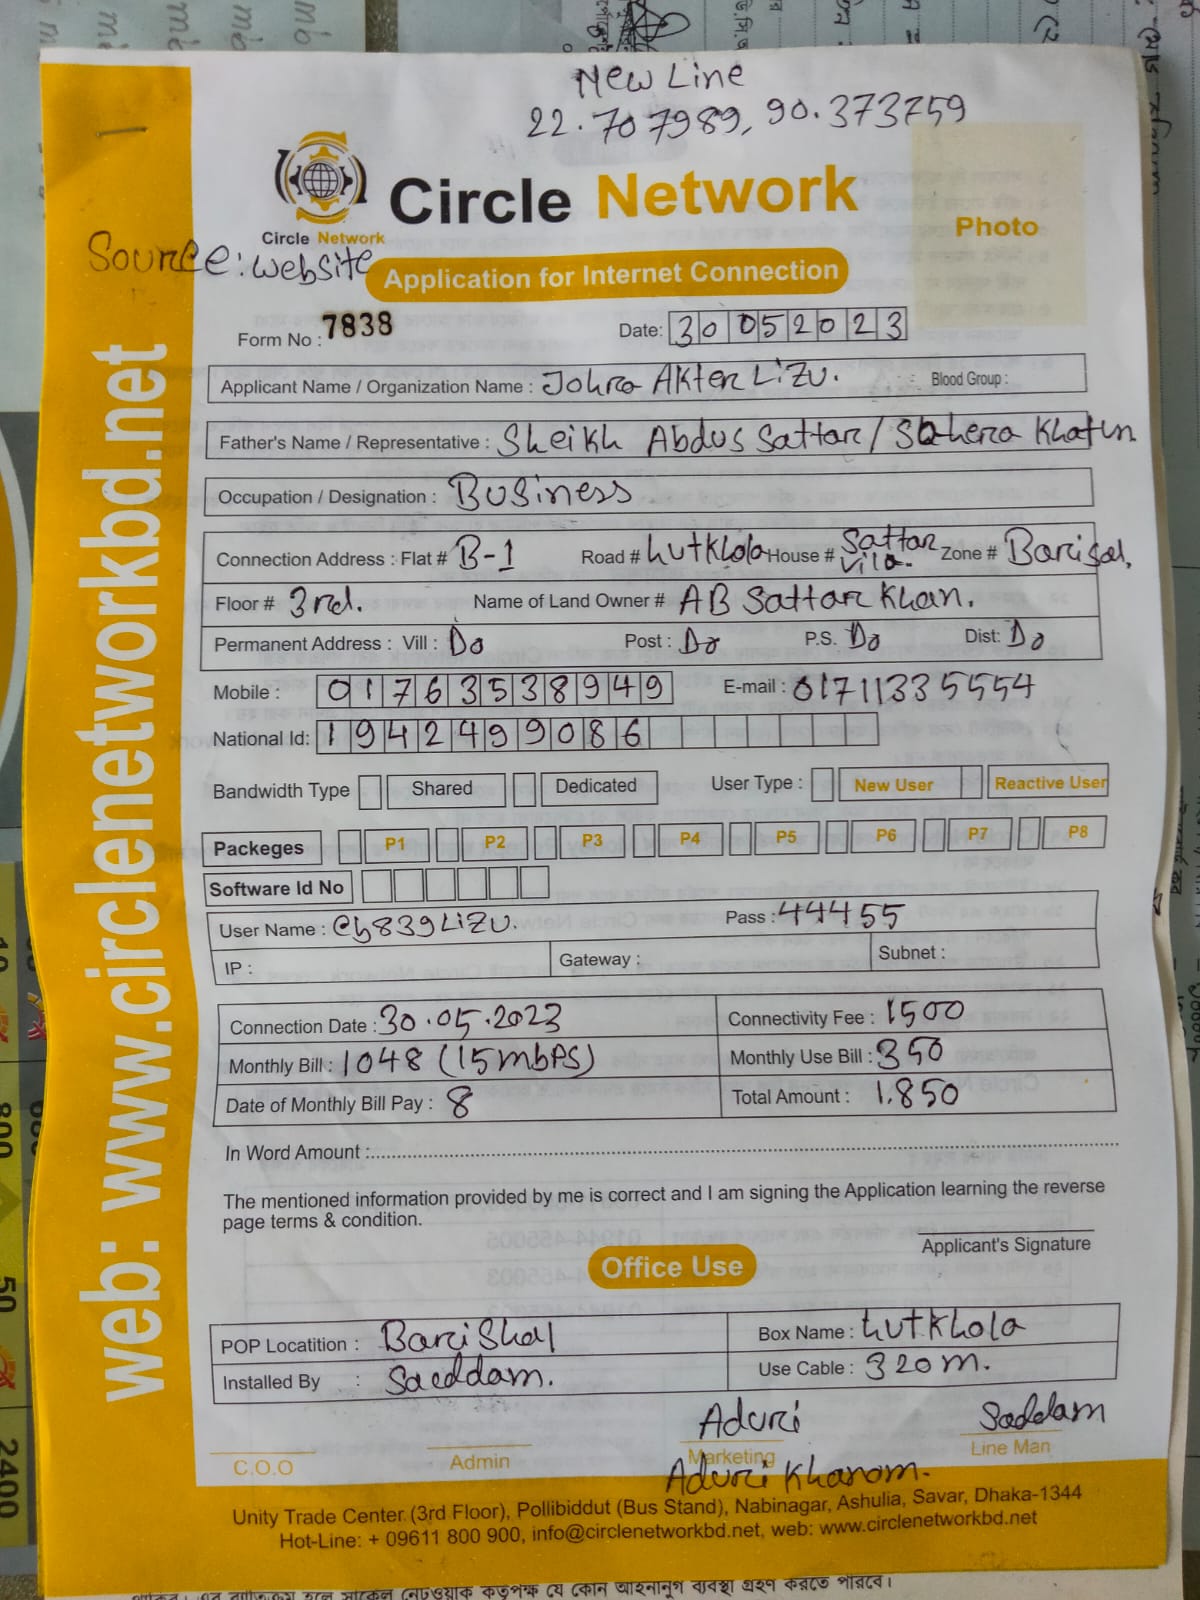 New Line
22.707989, 90.373759
Circle Network
Circle Network
Photo
Source: Website
Application for Internet Connection
Form No : 7838
Date: 30 05 2023
Applicant Name / Organization Name : Johra Akter Lizu. Blood Group :
Father's Name / Representative : Sheikh Abdus Sattar / Sahera Khatun
Occupation / Designation : Business
Connection Address : Flat # B-1 Road # hutkhola House # Sattar Vila. Zone # Barisal,
Floor # 3rd. Name of Land Owner # AB Sattar Khan.
Permanent Address : Vill : Do Post : Do P.S. Do Dist: Do
Mobile : 01763538949 E-mail : 01711335554
National Id: 1942499086
Bandwidth Type Shared Dedicated User Type : New User Reactive User
Packeges P1 P2 P3 P4 P5 P6 P7 P8
Software Id No
User Name : @h839Lizu. Pass : 44455
IP : Gateway : Subnet :
Connection Date : 30.05.2023 Connectivity Fee : 1500
Monthly Bill : 1048 (15mbps) Monthly Use Bill : 350
Date of Monthly Bill Pay : 8 Total Amount : 1,850
In Word Amount :
The mentioned information provided by me is correct and I am signing the Application learning the reverse
page terms & condition.
Applicant's Signature
Office Use
POP Locatition : Barishal Box Name : hutkhola
Installed By : Saeddam. Use Cable : 320m.
Aduri Saddam
C.O.O Admin Marketing Line Man
Aduri Khanom.
Unity Trade Center (3rd Floor), Pollibiddut (Bus Stand), Nabinagar, Ashulia, Savar, Dhaka-1344
Hot-Line: + 09611 800 900, info@circlenetworkbd.net, web: www.circlenetworkbd.net
web: www.circlenetworkbd.net